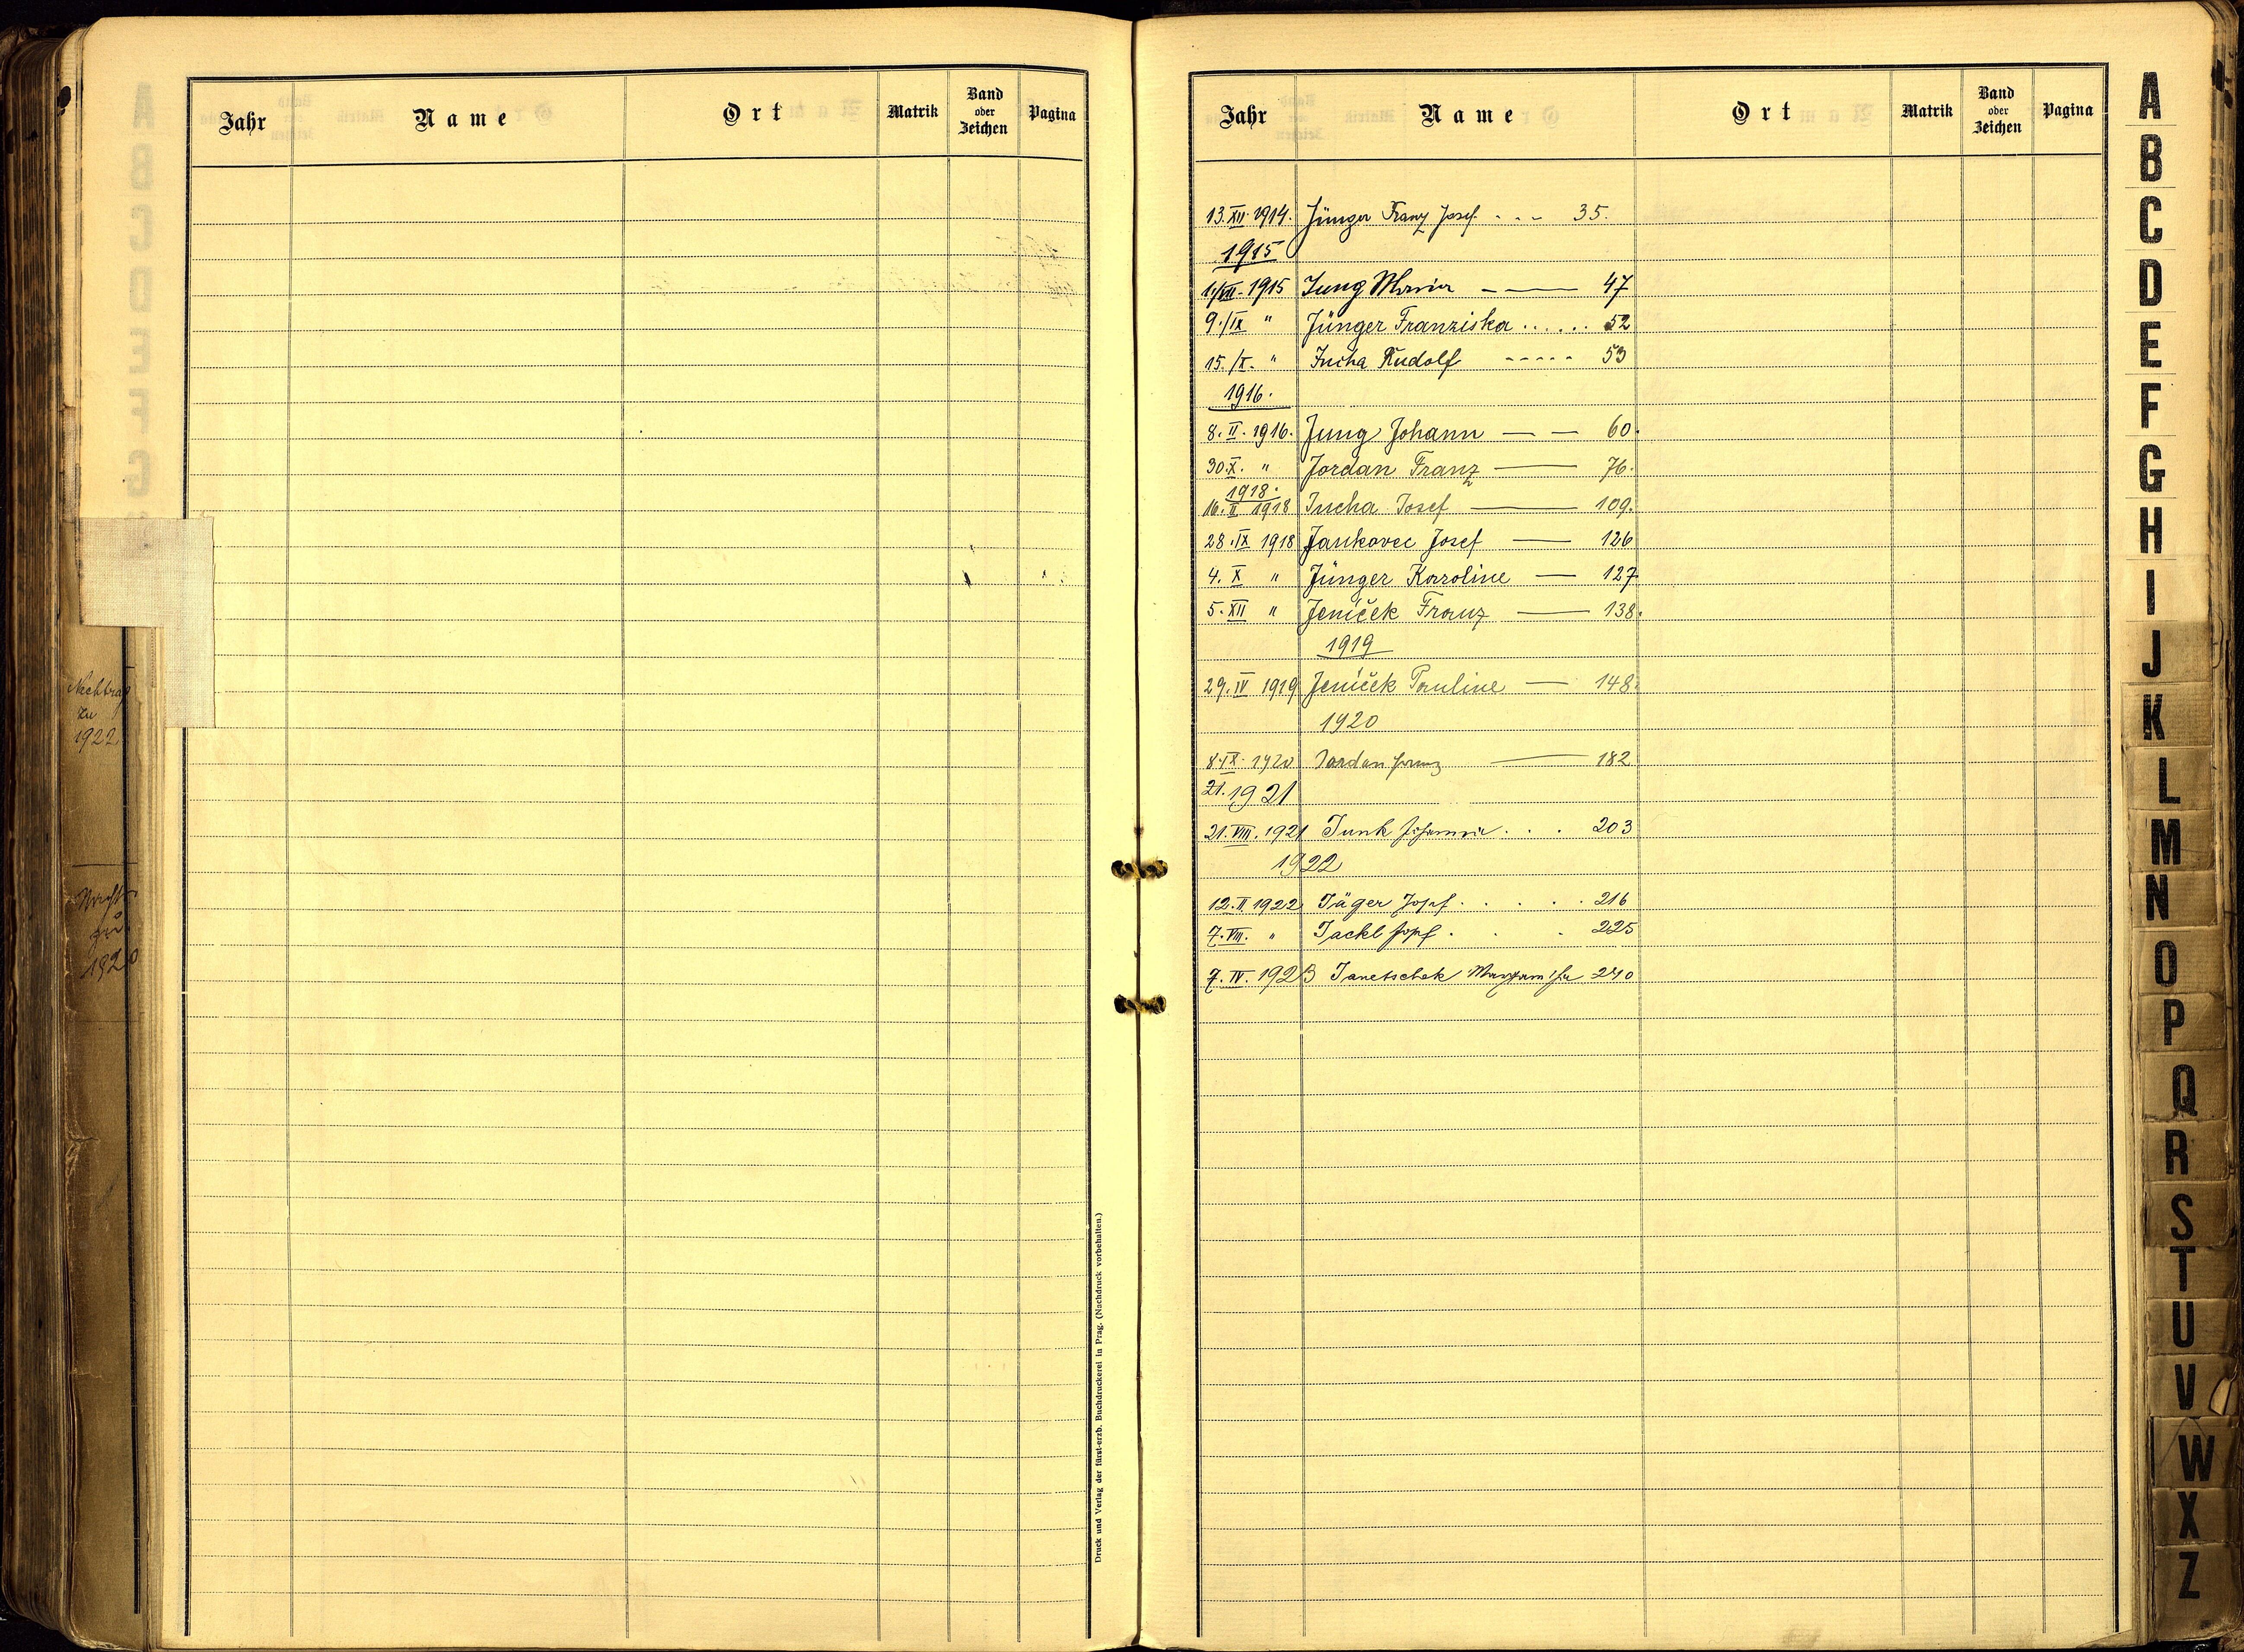 Jahr Name Ort Matrik Band oder Zeichen Pagina
Nachtrag
zu
1922
1920
Druck und Verlag der fürst-erzb. Buchdruckerei in Prag. (Nachdruck vorbehalten.)
Jahr Name Ort Matrik Band oder Zeichen Pagina
13. XII. 1914. Jünger Franz Josef. - - - 35.
1915
1./VII. 1915 Jung Maria - — 47
9./IX " Jünger Franziska ...... 52
15./X. " Jucha Rudolf ----- 53
1916.
8. II. 1916. Jung Johann — — 60.
30. X. " Jordan Franz — 76.
1918.
16. II 1918 Jucha Josef — 109.
28. IX 1918 Jankovec Josef — 126
4. X " Jünger Karoline — 127.
5. XII " Jeníček Franz — 138.
1919
29. IV 1919 Jeníček Pauline — 148.
1920
8. IX. 1920 Jordan Franz — 182
21. 1921
21. VIII. 1921 Junk Johanna . . . 203
1922
12. II 1922 Jäger Josef . . . . . 216
7. VIII. " Jackl Josef . . . 225
7. IV. 1923 Janetschek 240
A
B
C
D
E
F
G
H
I
J
K
L
M
N
O
P
Q
R
S
T
U
V
W
X
Z